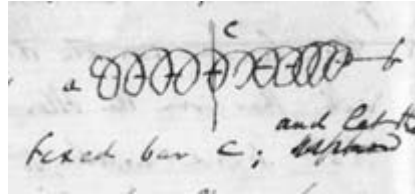 c
a b
and let the
fixed bar c;